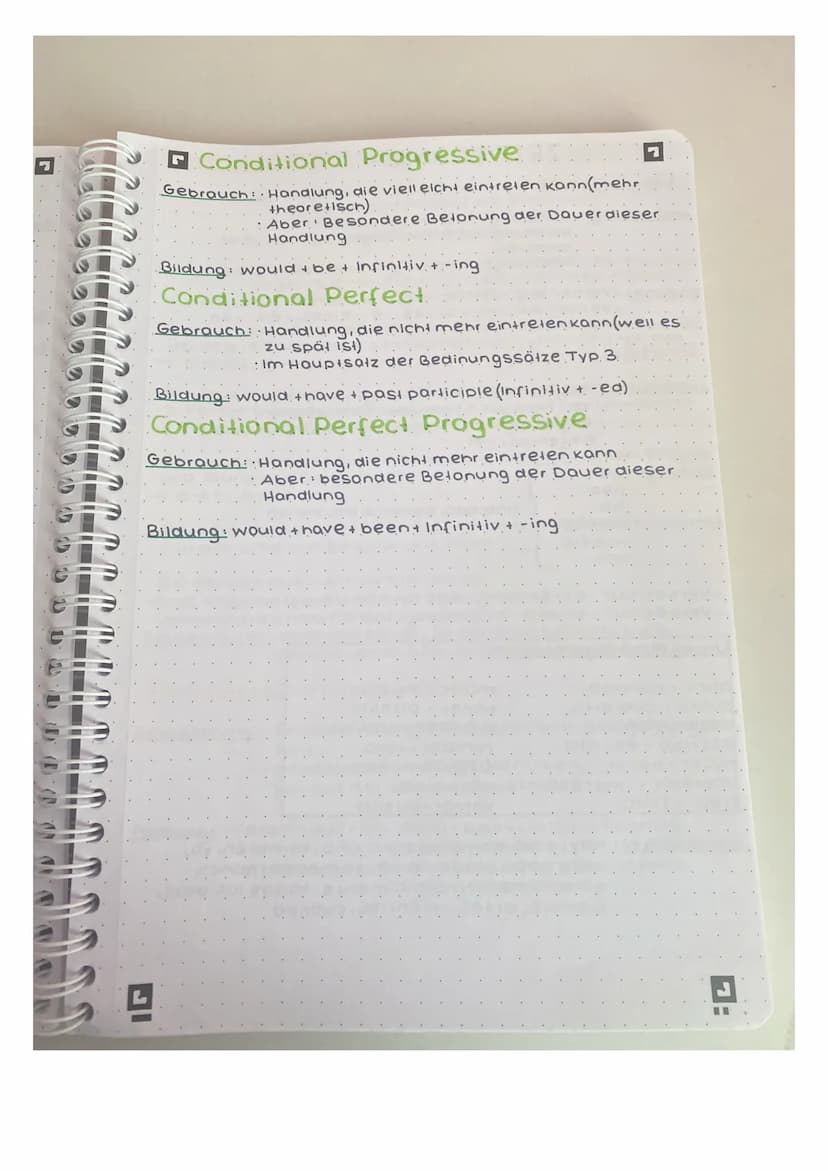 Conditional Progressive
Gebrauch: · Handlung, die vielleicht eintreten kann(mehr
theoretisch)
· Aber: Besondere Betonung der Dauer dieser
Handlung
Bildung: would + be + Infinitiv + -ing
Conditional Perfect
Gebrauch: · Handlung, die nicht mehr eintreten kann(weil es
zu spät ist)
· Im Hauptsatz der Bedinungssätze Typ 3
Bildung: would + have + past participle (Infinitiv + -ed)
Conditional Perfect Progressive
Gebrauch: · Handlung, die nicht mehr eintreten kann
· Aber: besondere Betonung der Dauer dieser
Handlung
Bildung: would + have + been + Infinitiv + -ing